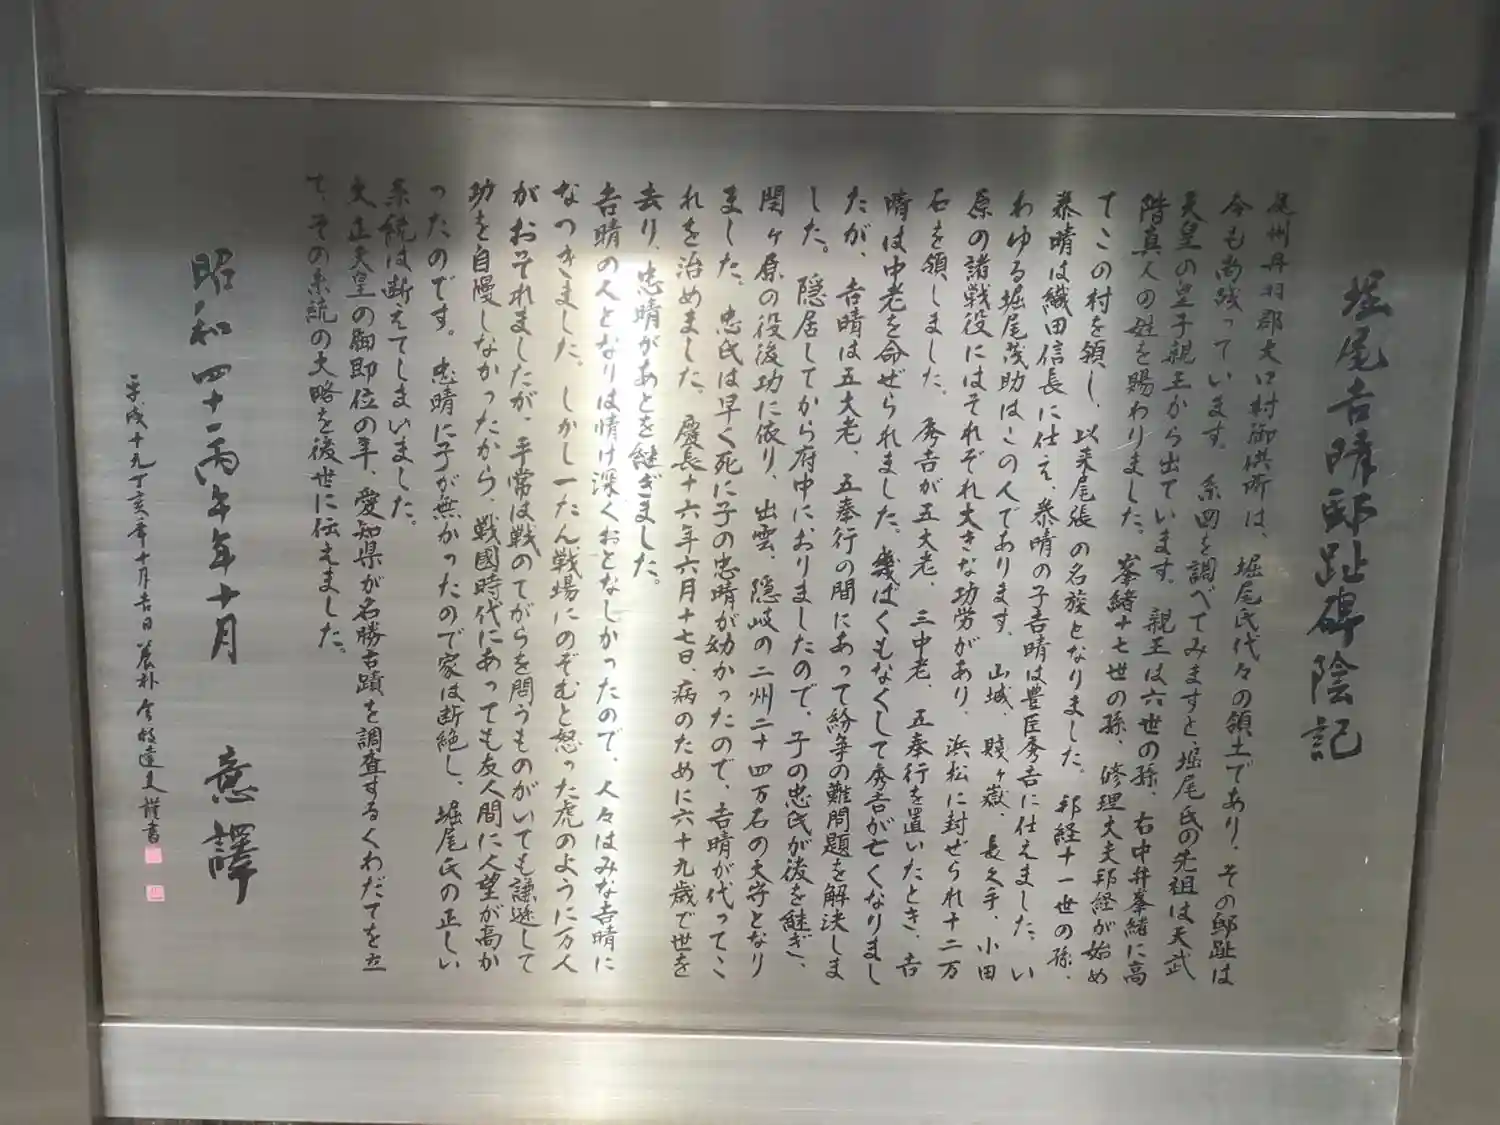 堀尾吉晴邸趾碑陰記
尾州丹羽郡大口村御供所は、堀尾氏代々の領土であり、その邸趾は
今も尚残っています。系図を調べてみますと堀尾氏の先祖は天武
天皇の皇子親王から出ています。親王は六世の孫、右中弁峯緒に高
階真人の姓を賜わりました。峯緒十七世の孫、修理大夫邦経が始め
てこの村を領し、以来尾張の名族となりました。邦経十一世の孫、
泰晴は織田信長に仕え、泰晴の子吉晴は豊臣秀吉に仕えました、い
わゆる堀尾茂助はこの人であります。山城、賤ヶ嶽、長久手、小田
原の諸戦役にはそれぞれ大きな功労があり、浜松に封ぜられ十二万
石を領しました。秀吉が五大老、三中老、五奉行を置いたとき、吉
晴は中老を命ぜられました。幾ばくもなくして秀吉が亡くなりまし
たが、吉晴は五大老、五奉行の間にあって紛争の難問題を解決しま
した。隠居してから府中におりましたので、子の忠氏が後を継ぎ、
関ヶ原の役後功に依り、出雲、隠岐の二州二十四万石の大守となり
ました。忠氏は早く死に子の忠晴が幼かったので、吉晴が代ってこ
れを治めました。慶長十六年六月十七日、病のために六十九歳で世を
去り、忠晴があとを継ぎました。
吉晴の人となりは情け深くおとなしかったので、人々はみな吉晴に
なつきました。しかし一たん戦場にのぞむと怒った虎のように万人
がおそれましたが、平常は戦のてがらを問うものがいても謙遜して
功を自慢しなかったから、戦國時代にあっても友人間に人望が高か
ったのです。忠晴に子が無かったので家は断絶し、堀尾氏の正しい
系統は断えてしまいました。
大正天皇の御即位の年、愛知県が名勝古蹟を調査するくわだてを立
て、その系統の大略を後世に伝えました。
昭和四十一丙午年十月 意譯
平成十九丁亥年十月吉日 達夫謹書